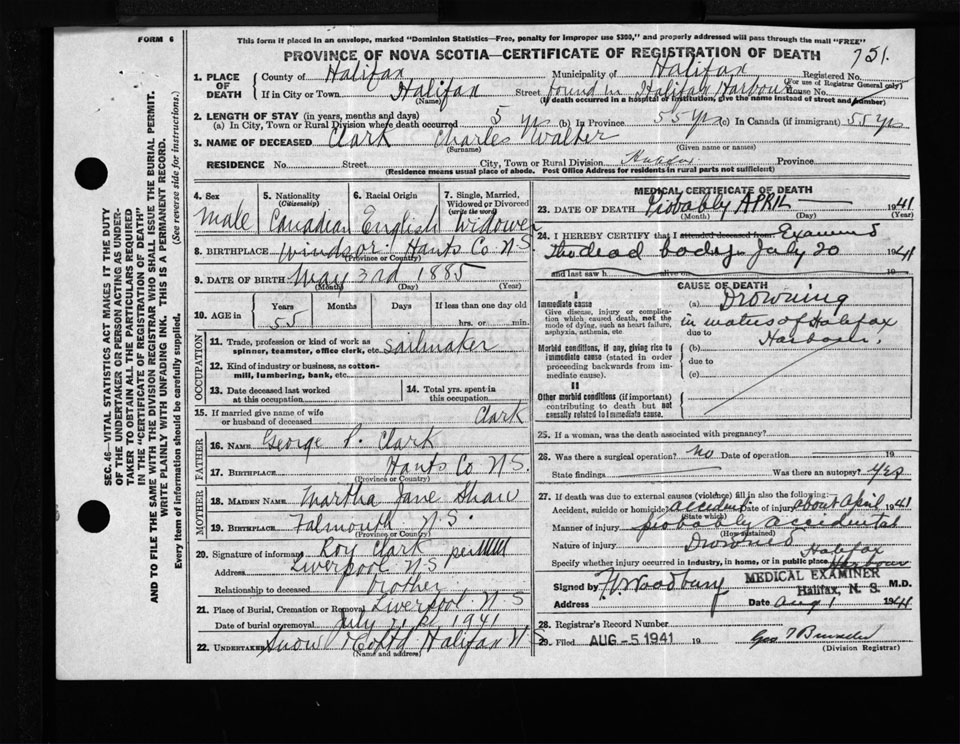 FORM 6
This form if placed in an envelope, marked "Dominion Statistics—Free, penalty for improper use $300," and properly addressed will pass through the mail "FREE"
PROVINCE OF NOVA SCOTIA—CERTIFICATE OF REGISTRATION OF DEATH
751
1. PLACE OF DEATH
County of Halifax Municipality of Halifax Registered No.
(For use of Registrar General only)
If in City or Town Halifax Street found in Halifax Harbour House No.
(Name) (If death occurred in a hospital or institution, give the name instead of street and number)
2. LENGTH OF STAY (in years, months and days)
(a) In City, Town or Rural Division where death occurred 5 yrs (b) In Province 55 yrs (c) In Canada (if immigrant) 55 yrs
3. NAME OF DECEASED Clark Charles Walter
(Surname) (Given name or names)
RESIDENCE No. Street City, Town or Rural Division Halifax Province
(Residence means usual place of abode. Post Office Address for residents in rural parts not sufficient)
4. Sex 5. Nationality (Citizenship) 6. Racial Origin 7. Single, Married, Widowed or Divorced (write the word)
male Canadian English Widower
8. BIRTHPLACE Windsor Hants Co N S
(Province or Country)
9. DATE OF BIRTH May 3rd 1885
(Month) (Day) (Year)
10. AGE in Years Months Days If less than one day old
55 hrs. or min.
OCCUPATION
11. Trade, profession or kind of work as spinner, teamster, office clerk, etc. sailmaker
12. Kind of industry or business, as cotton-mill, lumbering, bank, etc.
13. Date deceased last worked at this occupation
14. Total yrs. spent in this occupation
15. If married give name of wife or husband of deceased Clark
FATHER
16. NAME George P. Clark
17. BIRTHPLACE Hants Co N.S.
(Province or Country)
MOTHER
18. MAIDEN NAME Martha Jane Shaw
19. BIRTHPLACE Falmouth N.S.
(Province or Country)
20. Signature of informant Roy Clark per
Address Liverpool N.S
Relationship to deceased brother
21. Place of Burial, Cremation or Removal Liverpool N.S
Date of burial or removal July 21st 1941
22. UNDERTAKER Snow & Co Ltd Halifax N
(Name and address)
MEDICAL CERTIFICATE OF DEATH
23. DATE OF DEATH Probably APRIL 1941
(Month) (Day)
24. I HEREBY CERTIFY that I attended deceased from Examined
The dead body July 20 1941
and last saw h alive on 19
CAUSE OF DEATH
I
Immediate cause
Give disease, injury or complication which caused death, not the mode of dying, such as heart failure, asphyxia, asthenia, etc.
(a) Drowning
in waters of Halifax
due to Harbour.
Morbid conditions, if any, giving rise to immediate cause (stated in order proceeding backwards from immediate cause).
(b)
due to
(c)
II
Other morbid conditions (if important) contributing to death but not causally related to immediate cause.
25. If a woman, was the death associated with pregnancy?
26. Was there a surgical operation? no Date of operation 19
State findings Was there an autopsy? yes
27. If death was due to external causes (violence) fill in also the following:
Accident, suicide or homicide? accident Date of injury about April 1941
(State which)
Manner of injury probably accidental
(How sustained)
Nature of injury Drowned
Specify whether injury occurred in Industry, in home, or in public place Halifax Harbour
Signed by Woodbury MEDICAL EXAMINER M.D.
Halifax, N. S.
Address Date Aug 1 1941
28. Registrar's Record Number
29. Filed AUG -5 1941 19
(Division Registrar)
SEC. 46—VITAL STATISTICS ACT MAKES IT THE DUTY OF THE UNDERTAKER OR PERSON ACTING AS UNDERTAKER TO OBTAIN ALL THE PARTICULARS REQUIRED IN THE "CERTIFICATE OF REGISTRATION OF DEATH"
AND TO FILE THE SAME WITH THE DIVISION REGISTRAR WHO SHALL ISSUE THE BURIAL PERMIT.
WRITE PLAINLY WITH UNFADING INK. THIS IS A PERMANENT RECORD.
Every item of information should be carefully supplied. (See reverse side for instructions.)